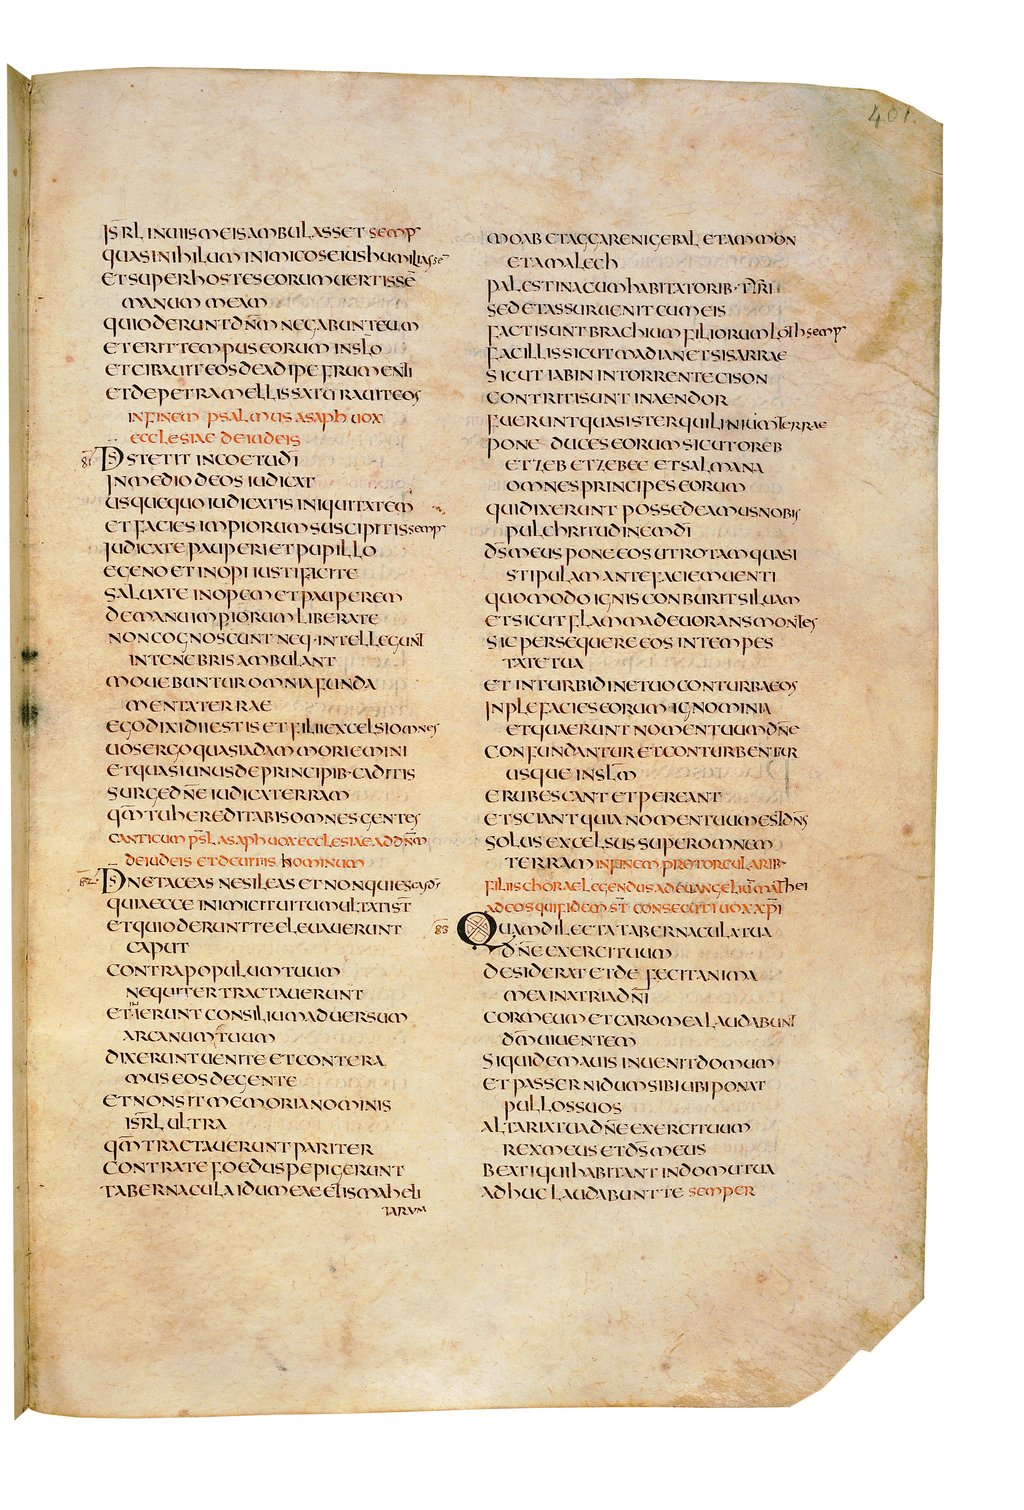 401.
ISRL INUIISMEISAMBULASSET semp
QUASINIHILUM INIMICOSEIUSHUMILIASSE
ETSUPERHOSTESEORUMUERTISSE
MANUM MEAM
QUIODERUNTDNM NEGABUNTEUM
ETERITTEMPUSEORUM INSLO
ETCIBAUITEOSDEADIPEFRUMENTI
ETDEPETRAMELLISSATURAUITEOS
INFINEM PSALMUS ASAPH UOX
ECCLESIAE DEIUDEIS
81 DS STETIT INCOETUDI
INMEDIO DEOS IUDICAT
USQUEQUO IUDICATIS INIQUITATEM
ET FACIES IMPIORUM SUSCIPITIS semp
IUDICATE PAUPERI ET PUPILLO
EGENO ET INOPI IUSTIFICITE
SALUATE INOPEM ET PAUPEREM
DEMANU IMPIORUM LIBERATE
NONCOGNOSCUNT NEQ·INTELLEGUNT
INTENEBRIS AMBULANT
MOUEBUNTUR OMNIA FUNDA
MENTA TERRAE
EGODIXIDIIESTIS ET FILIIEXCELSIOMNES
UOSERGOQUASIADAM MORIEMINI
ETQUASIUNUSDEPRINCIPIB·CADITIS
SURGEDNE IUDICATERRAM
QM TUHEREDITABISOMNES GENTES
CANTICUM PSL ASAPH UOXECCLESIAE ADDNM
DEIUDEIS ET DEUITIIS HOMINUM
82 DS NETACEAS NESILEAS ET NONQUIESCASDS
QUIAECCE INIMICITUITUMULTATIST
ETQUIODERUNTTEELEUAUERUNT
CAPUT
CONTRAPOPULUMTUUM
NEQUITERTRACTAUERUNT
ETIIERUNTCONSILIUMADUERSUM
ARCANUMTUUM
DIXERUNTUENITE ETCONTERA
MUSEOSDEGENTE
ETNONSITMEMORIANOMINIS
ISRL ULTRA
QM TRACTAUERUNT PARITER
CONTRATE FOEDUSPEPIGERUNT
TABERNACULAIDUMEAE ETISMAHELI
TARUM
MOAB ETAGGARENI GEBAL ETAMMON
ETAMALECH
PALESTINACUMHABITATORIB·TYRI
SEDETASSURUENITCUMEIS
FACTISUNTBRACHIUM FILIORUMLOTH semp
FACILLISSICUTMADIANETSISARRAE
SICUT IABIN INTORRENTECISON
CONTRITISUNT INAENDOR
FUERUNTQUASISTERQUILINIUMTERRAE
PONE DUCESEORUMSICUTOREB
ETZEB ETZEBEE ETSALMANA
OMNES PRINCIPES EORUM
QUIDIXERUNT POSSEDEAMUSNOBIS
PULCHRITUDINEMDI
DSMEUS PONEEOS UTROTAMQUASI
STIPULAM ANTEFACIEMUENTI
QUOMODOIGNIS CONBURITSILUAM
ETSICUTFLAMMADEUORANSMONTES
SICPERSEQUEREEOS INTEMPES
TATETUA
ET INTURBIDINETUO CONTURBAEOS
INPLEFACIESEORUM IGNOMINIA
ETQUAERUNTNOMENTUUMDNE
CONFUNDANTUR ETCONTURBENTUR
USQUE INSLM
ERUBESCANT ETPEREANT
ETSCIANTQUIANOMENTUUMESTDNS
SOLUS EXCELSUSSUPEROMNEM
TERRAM INFINEM PROTORCULARIB·
FILIISCHORAELEGENDUSADEUANGELIUMATTHEI
ADEOSQUIFIDEMST CONSECUTIUOXXPI
83 QUAMDILECTATABERNACULATUA
DNE EXERCITUUM
DESIDERAT ETDEFECITANIMA
MEAINATRIADNI
CORMEUM ETCAROMEALAUDABUNT
DMUIUENTEM
SIQUIDEMAUIS INUENITDOMUM
ET PASSERNIDUMSIBIUBIPONAT
PULLOSSUOS
ALTARIATUADNEEXERCITUUM
REXMEUS ETDSMEUS
BEATIQUIHABITANT INDOMUTUA
ADHUC LAUDABUNTTE SEMPER